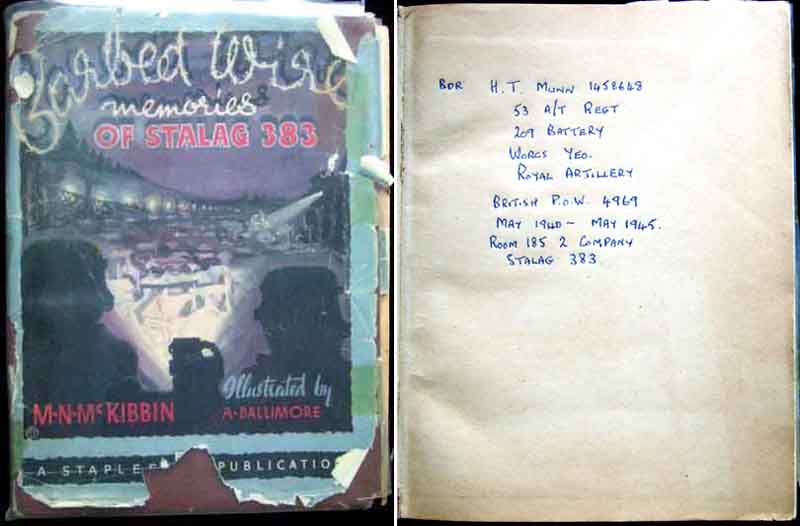 Barbed Wire
memories
OF STALAG 383
M·N·McKIBBIN
Illustrated by
A·BALLIMORE
A STAPLE PUBLICATIO
BDR H. T. MUNN 1458648
53 A/T REGT
209 BATTERY
WORCS YEO.
ROYAL ARTILLERY
BRITISH P.O.W. 4969
MAY 1940 - MAY 1945.
ROOM 185 2 COMPANY
STALAG 383